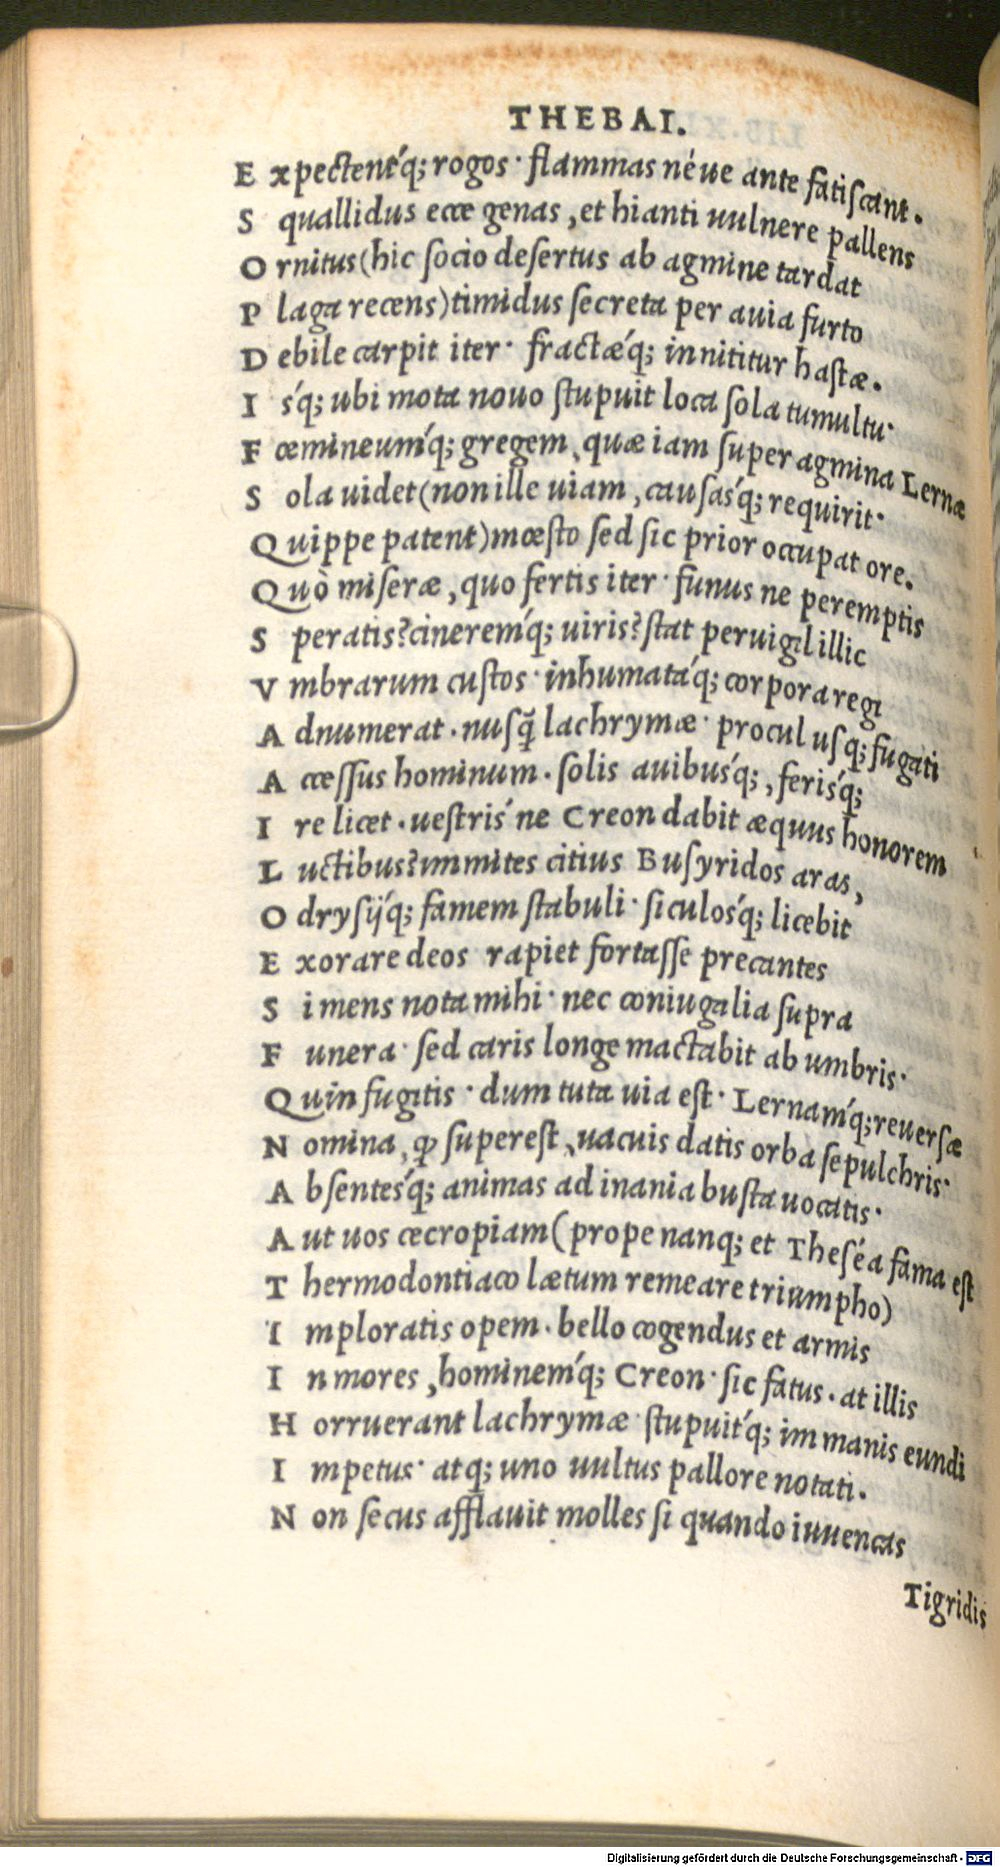 THEBAI.
E xpectent´q; rogos· flammas néue ante fatiſcant.
S quallidus ecce genas, et hianti uulnere pallens
O rnitus(hic ſocio deſertus ab agmine tardat
P laga recens)timidus ſecreta per auia furto
D ebile carpit iter· fractæ´q; innititur haſtæ.
I s´q; ubi mota nouo ſtupuit loca ſola tumultu·
F œmineum´q; gregem, quæ iam ſuper agmina Lernæ
S ola uidet(non ille uiam, cauſas´q; requirit·
Q uippe patent)mœſto ſed ſic prior occupat ore.
Q uò miſeræ, quo fertis iter· funus ne peremptis
S peratis?cinerem´q; uiris?ſtat peruigil illic
V mbrarum cuſtos· inhumata´q; corpora regi
A dnumerat. nuſq̃ lachrymæ· procul uſq; fugati
A cceſſus hominum. ſolis auibus´q;, feris´q;
I re licet. ueſtris´ne Creon dabit æquus honorem
L uctibus?immites citius Buſyridos aras,
O dryſij´q; famem ſtabuli· ſiculos´q; licebit
E xorare deos rapiet fortaſſe precantes
S i mens nota mihi· nec coniugalia ſupra
F unera· ſed caris longe mactabit ab umbris·
Q uin fugitis· dum tuta uia eſt· Lernam´q; reuerſæ
N omina, ꝙ ſupereſt, uacuis datis orba ſepulchris·
A bſentes´q; animas ad inania buſta uocatis·
A ut uos cecropiam(prope nanq; et Theſéa fama eſt
T hermodontiaco lætum remeare triumpho)
I mploratis opem. bello cogendus et armis
I n mores, hominem´q; Creon· ſic fatus. at illis
H orruerant lachrymæ· ſtupuit´q; immanis eundi
I mpetus· atq; uno uultus pallore notati.
N on ſecus afflauit molles ſi quando iuuencas
Tigridis
Digitalisierung gefördert durch die Deutsche Forschungsgemeinschaft - DFG